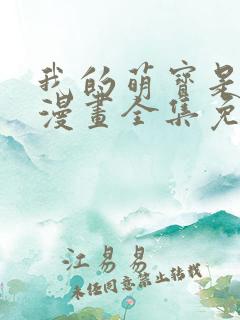 我的萌宝是
漫畫全集免
江易易
未任同意禁止转載